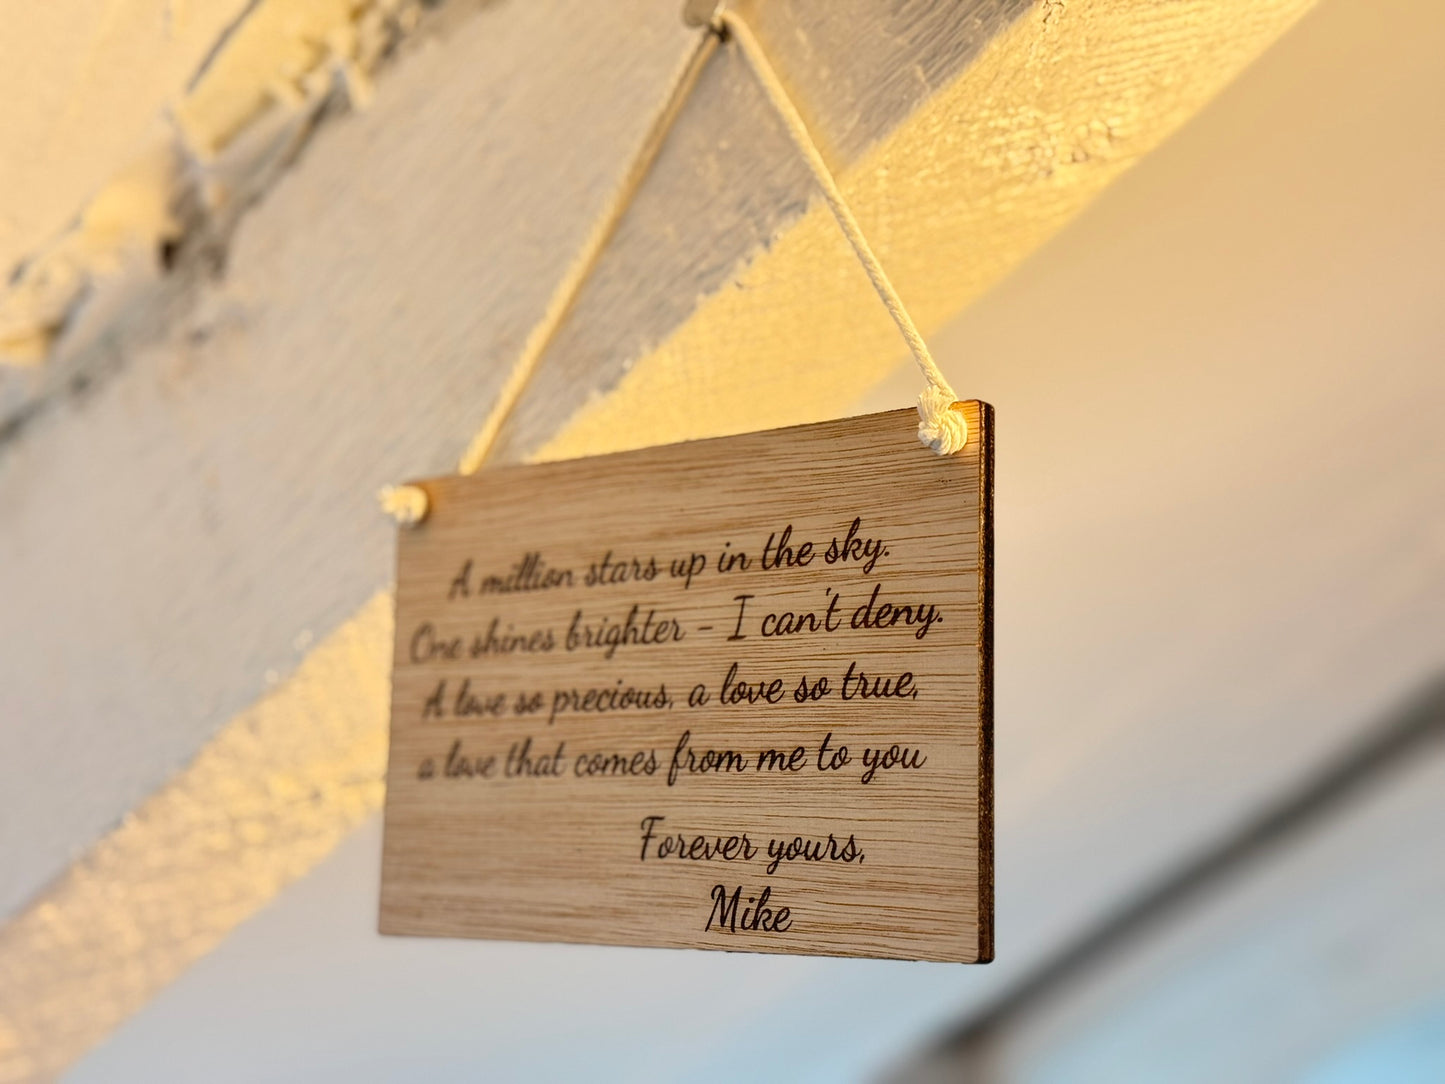 A million stars up in the sky.
One shines brighter – I can't deny.
A love so precious, a love so true,
a love that comes from me to you
Forever yours,
Mike